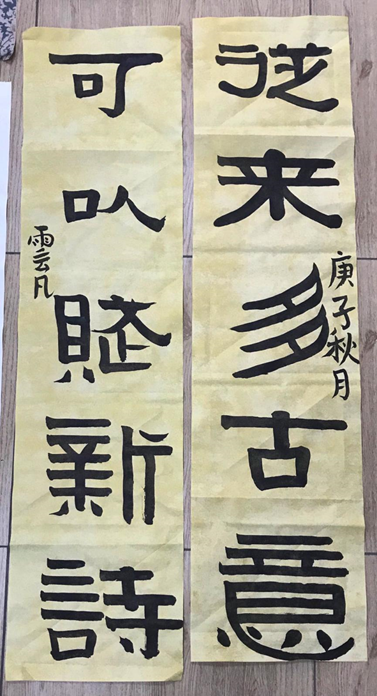 従来多古意
庚子秋月
可以賦新詩
雲凡